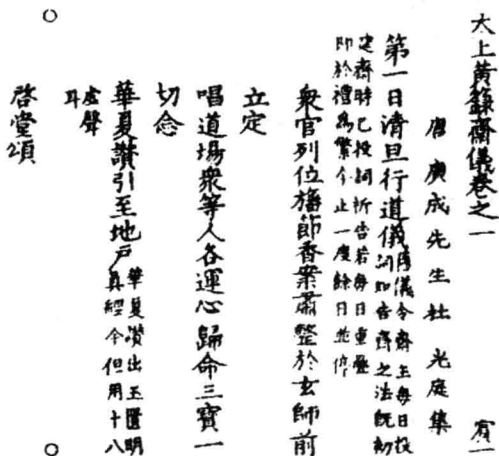 太上黃籙齋儀卷之一 賓一
唐 廣成先生杜 光庭集
第一日清旦行道儀舊儀令齋主每日投
詞如告齋之法既初
建齋時已投詞祈告若每日重疊
即於禮為繁今止一度餘日並停
衆官列位旛節香案肅整於玄師前
立定
唱道場衆等人各運心歸命三寶一
切念
華夏讚引至地戶華夏讚出玉匱明
真經今但用十八
虛聲
耳
啓堂頌